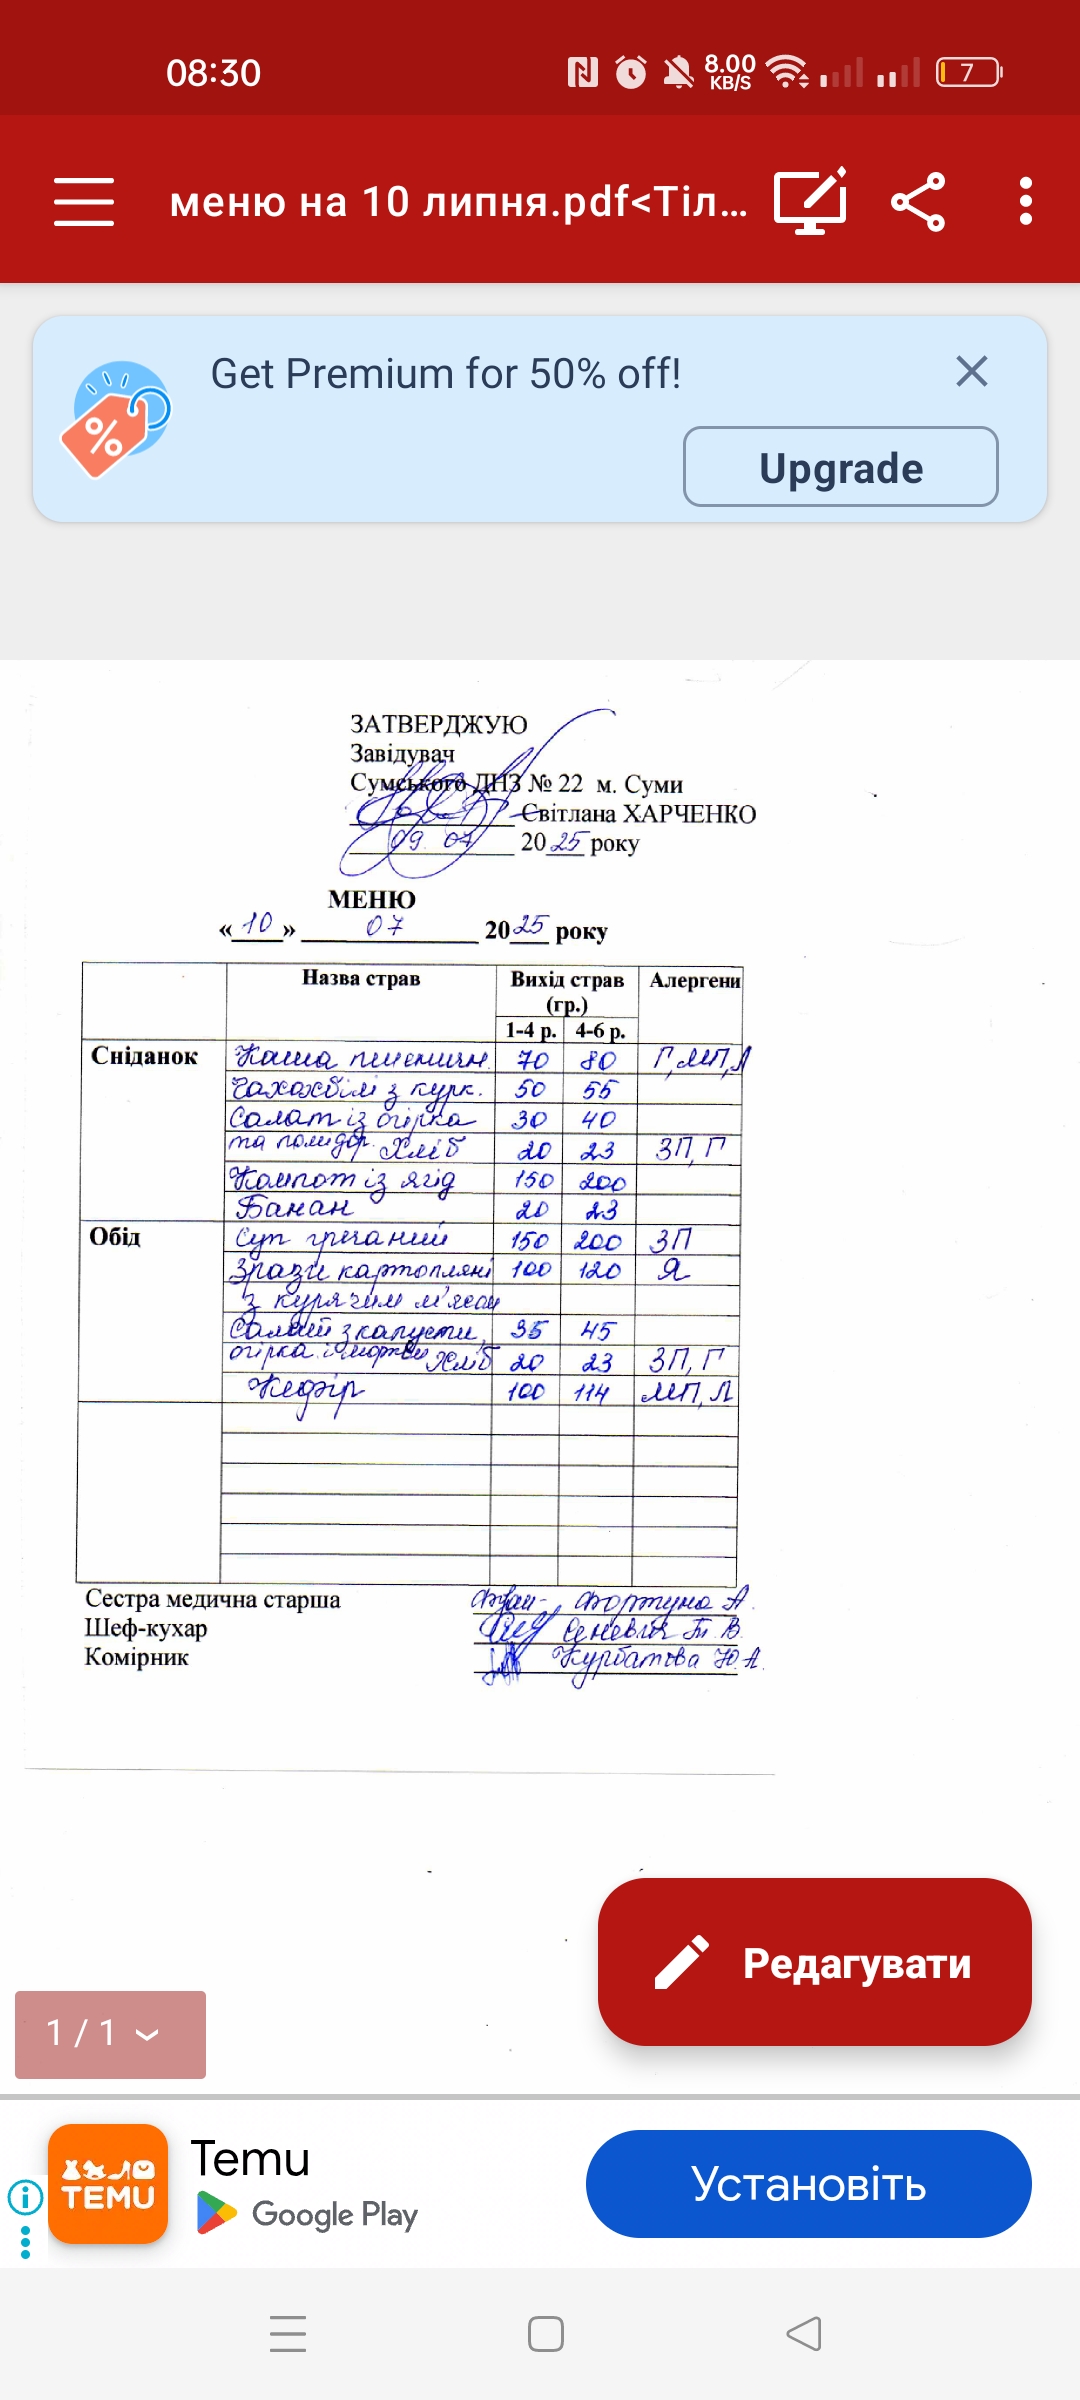 08:30
8.00
KB/S
7
меню на 10 липня.pdf<Тіл...
Get Premium for 50% off!
Upgrade
ЗАТВЕРДЖУЮ
Завідувач
Сумського ДНЗ № 22 м. Суми
Світлана ХАРЧЕНКО
09. 07 2025 року
МЕНЮ
«10» 07 2025 року
Назва страв Вихід страв (гр.) Алергени
1-4 р. 4-6 р.
Сніданок Каша пшеничн. 70 80 Г, МП, Л
Чахохбілі з курк. 50 55
Салат із огірка 30 40
та помідор. Хліб 20 23 ЗП, Г
Компот із ягід 150 200
Банан 20 23
Обід Суп гречаний 150 200 ЗП
Зрази картопляні 100 120 Я
з курячим м'ясом
Салат з капусти, 35 45
огірка і моркви Хліб 20 23 ЗП, Г
Кефір 100 114 МП, Л
Сестра медична старша Фортуна А.
Шеф-кухар Т. В.
Комірник Курбатова Ю.А.
Редагувати
1 / 1
TEMU
Temu
Google Play
Установіть